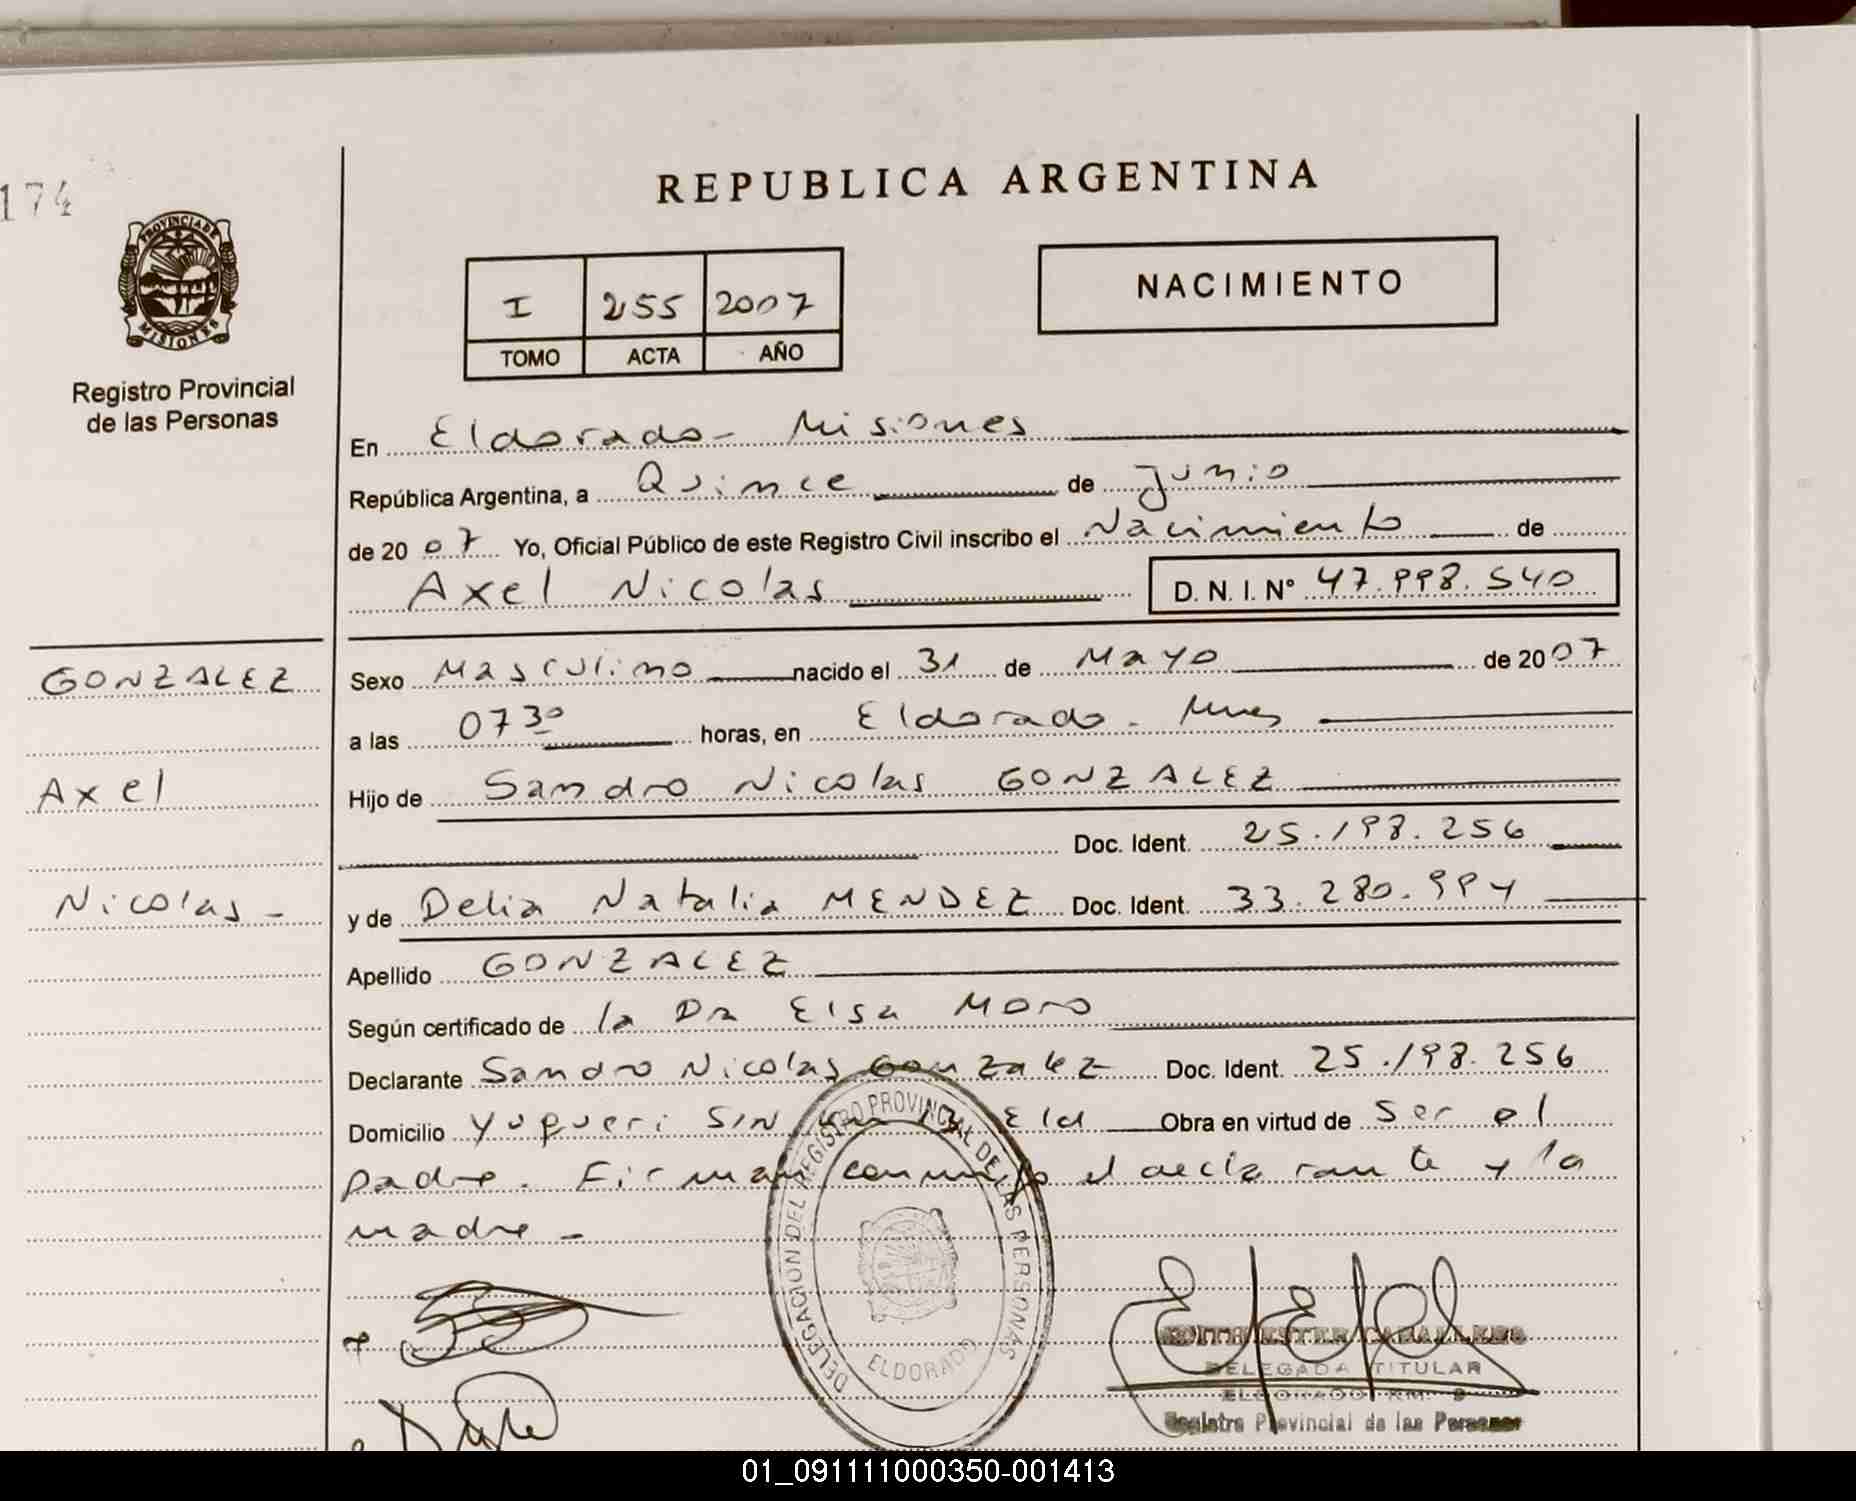 174
PROVINCIA DE
MISIONES
Registro Provincial
de las Personas
REPUBLICA ARGENTINA
I 255 2007
TOMO ACTA AÑO
NACIMIENTO
En Eldorado - Misiones
República Argentina, a Quince de Junio
de 2007 Yo, Oficial Público de este Registro Civil inscribo el Nacimiento de
Axel Nicolas D. N. I. Nº 47.998.540
GONZALEZ
Axel
Nicolas -
Sexo Masculino nacido el 31 de Mayo de 2007
a las 0730 horas, en Eldorado - Mnes
Hijo de Sandro Nicolas GONZALEZ
Doc. Ident. 25.198.256
y de Delia Natalia MENDEZ Doc. Ident. 33.280.994
Apellido GONZALEZ
Según certificado de la Dra Elsa Moro
Declarante Sandro Nicolas Gonzalez Doc. Ident. 25.198.256
Domicilio Yuqueri S/N Eld Obra en virtud de Ser el
padre. Firman conmigo el declarante y la
madre -
DELEGACION DEL REGISTRO PROVINCIAL DE LAS PERSONAS
ELDORADO
EDITH ESTER CABALLERO
DELEGADA TITULAR
ELDORADO KM. 9
Registro Provincial de las Personas
01_091111000350-001413